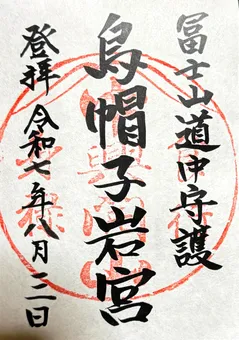 冨士山道中守護
烏帽子岩宮
登拝 令和七年八月三一日